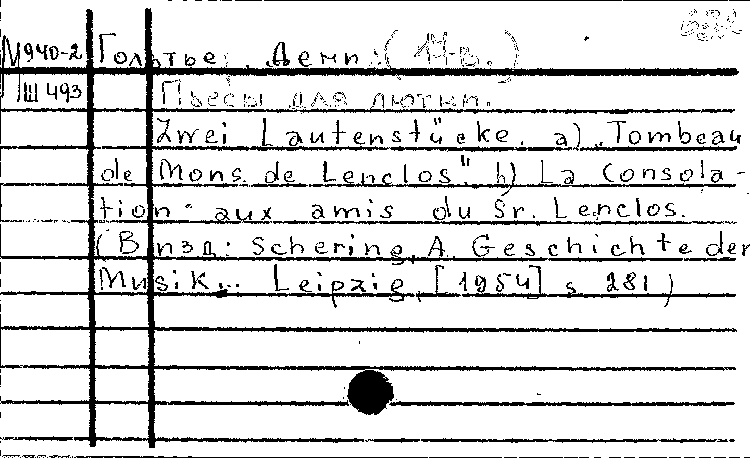 М940-2 Готье, Дени (17 в.)
Ш 493 Пьесы для лютни.
Zwei Lautenstücke. a) „Tombeau
de Mons. de Lenclos" b) La Consola-
tion aux amis du Sr. Lenclos.
(В изд: Schering, A. Geschichte der
Musik... Leipzig, [1954] s 281)